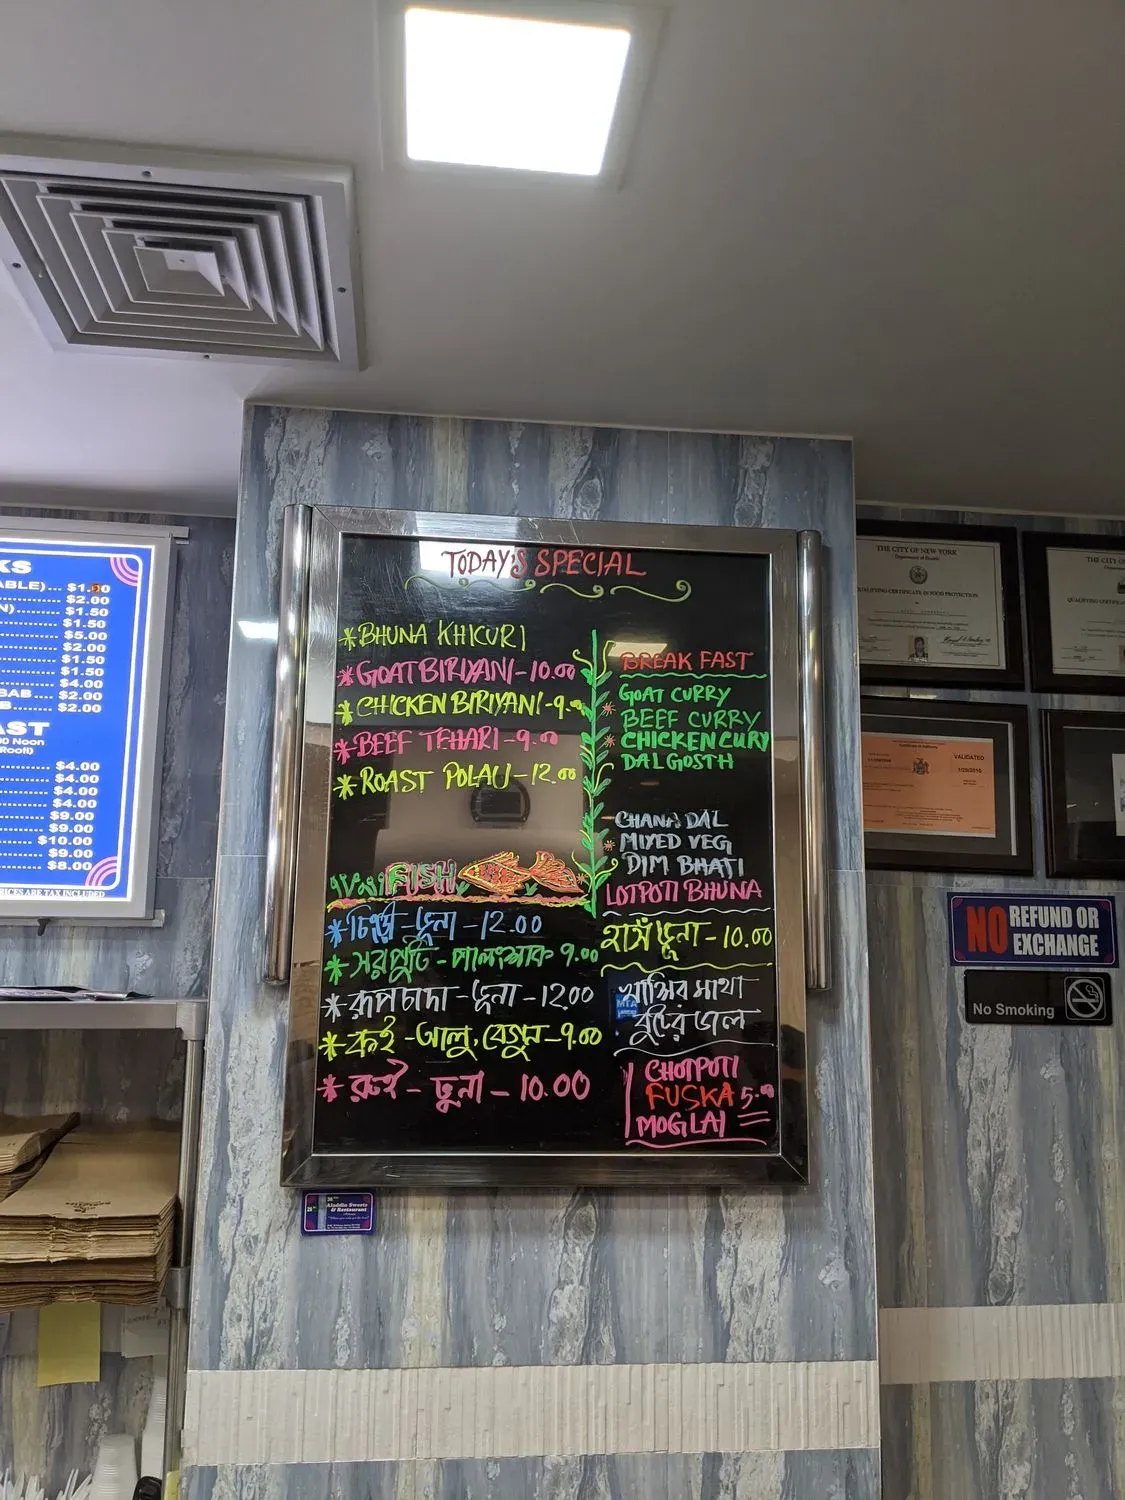 KS
ABLE)... $1.50
$2.00
N)........... $1.50
$1.50
$5.00
$2.00
$1.50
$1.50
$4.00
BAB..... $2.00
B.......... $2.00
AST
00 Noon
Rooti)
$4.00
$4.00
$4.00
$4.00
$9.00
$9.00
$10.00
$9.00
$8.00
PRICES ARE TAX INCLUDED
TODAY'S SPECIAL
*BHUNA KHICURI
*GOAT BIRIYANI-10.00
*CHICKEN BIRIYANI-9.00
*BEEF TEHARI-9.00
*ROAST POLAU-12.00
FISH
*চিংড়ী-ভূনা-12.00
*সরপুটি-পালংশাক 9.00
*রূপচাদা-ভূনা-1200
*কই-আলু,বেগুন-9.00
*রুই-ভুনা-10.00
BREAK FAST
GOAT CURRY
BEEF CURRY
CHICKEN CURY
DAL GOSTH
CHANA DAL
MIYED VEG
DIM BHAJI
LOTPOTI BHUNA
হাসঁ ভূনা-10.00
খাসির মাথা
বুটের ডাল
CHOTPOTI
FUSKA 5.00
MOGLAI
Aladdin Sweets
& Restaurant
MTA
THE CITY OF NEW YORK
QUALIFYING CERTIFICATE IN FOOD PROTECTION
THE CITY OF
VALIDATED
NO REFUND OR
EXCHANGE
No Smoking